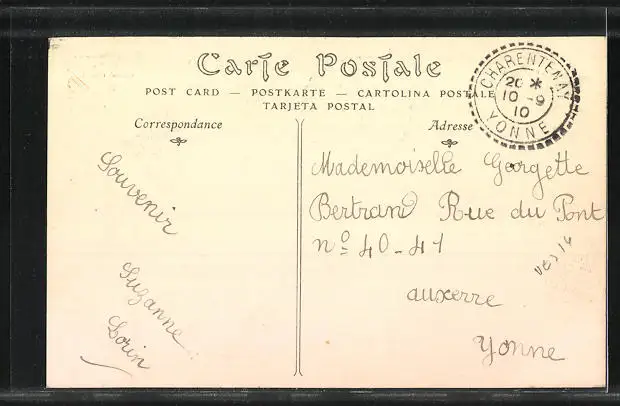 Carte Postale
POST CARD — POSTKARTE — CARTOLINA POSTALE
TARJETA POSTAL
CHARENTENAY
20 *
10 -9
10
YONNE
Correspondance
Adresse
Souvenir
Suzanne
Lorin
Mademoiselle Georgette
Bertrand Rue du Pont
n° 40-41
auxerre
Yonne